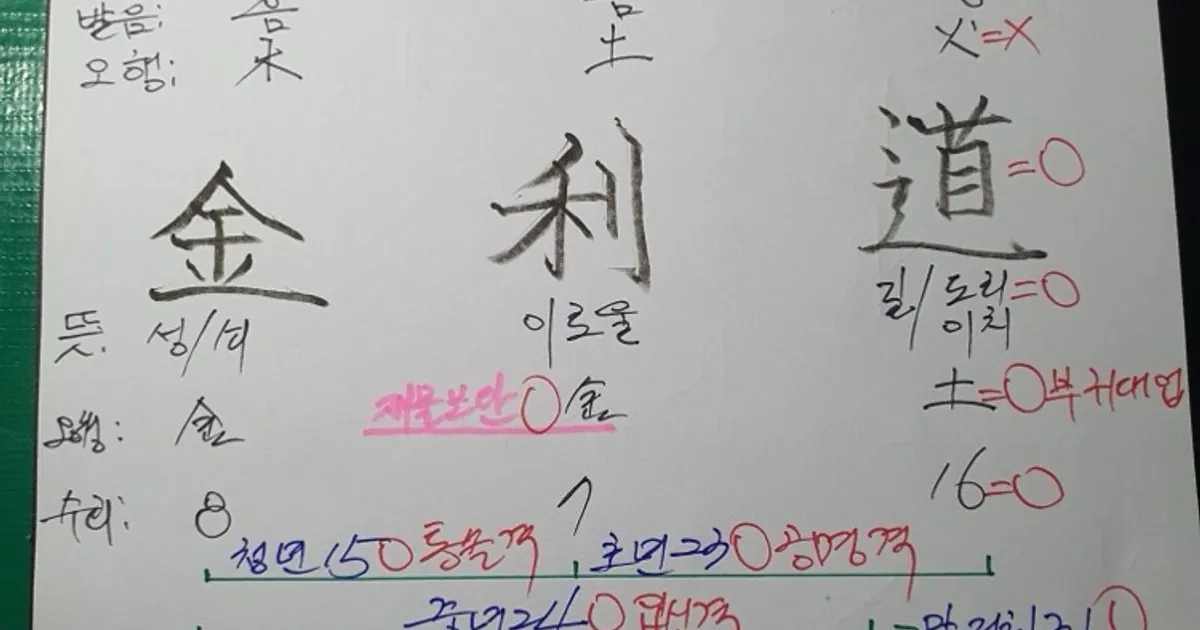 발음: 음 음
오행: 木 土 火=X
金 利 道=O
뜻: 성/쇠 이로울 길/도리=O
이치
오행: 金 재물보안O金 土=O부귀대업
수리: 8 7 16=O
청년15O통솔격 초년23O공명격
중년24O